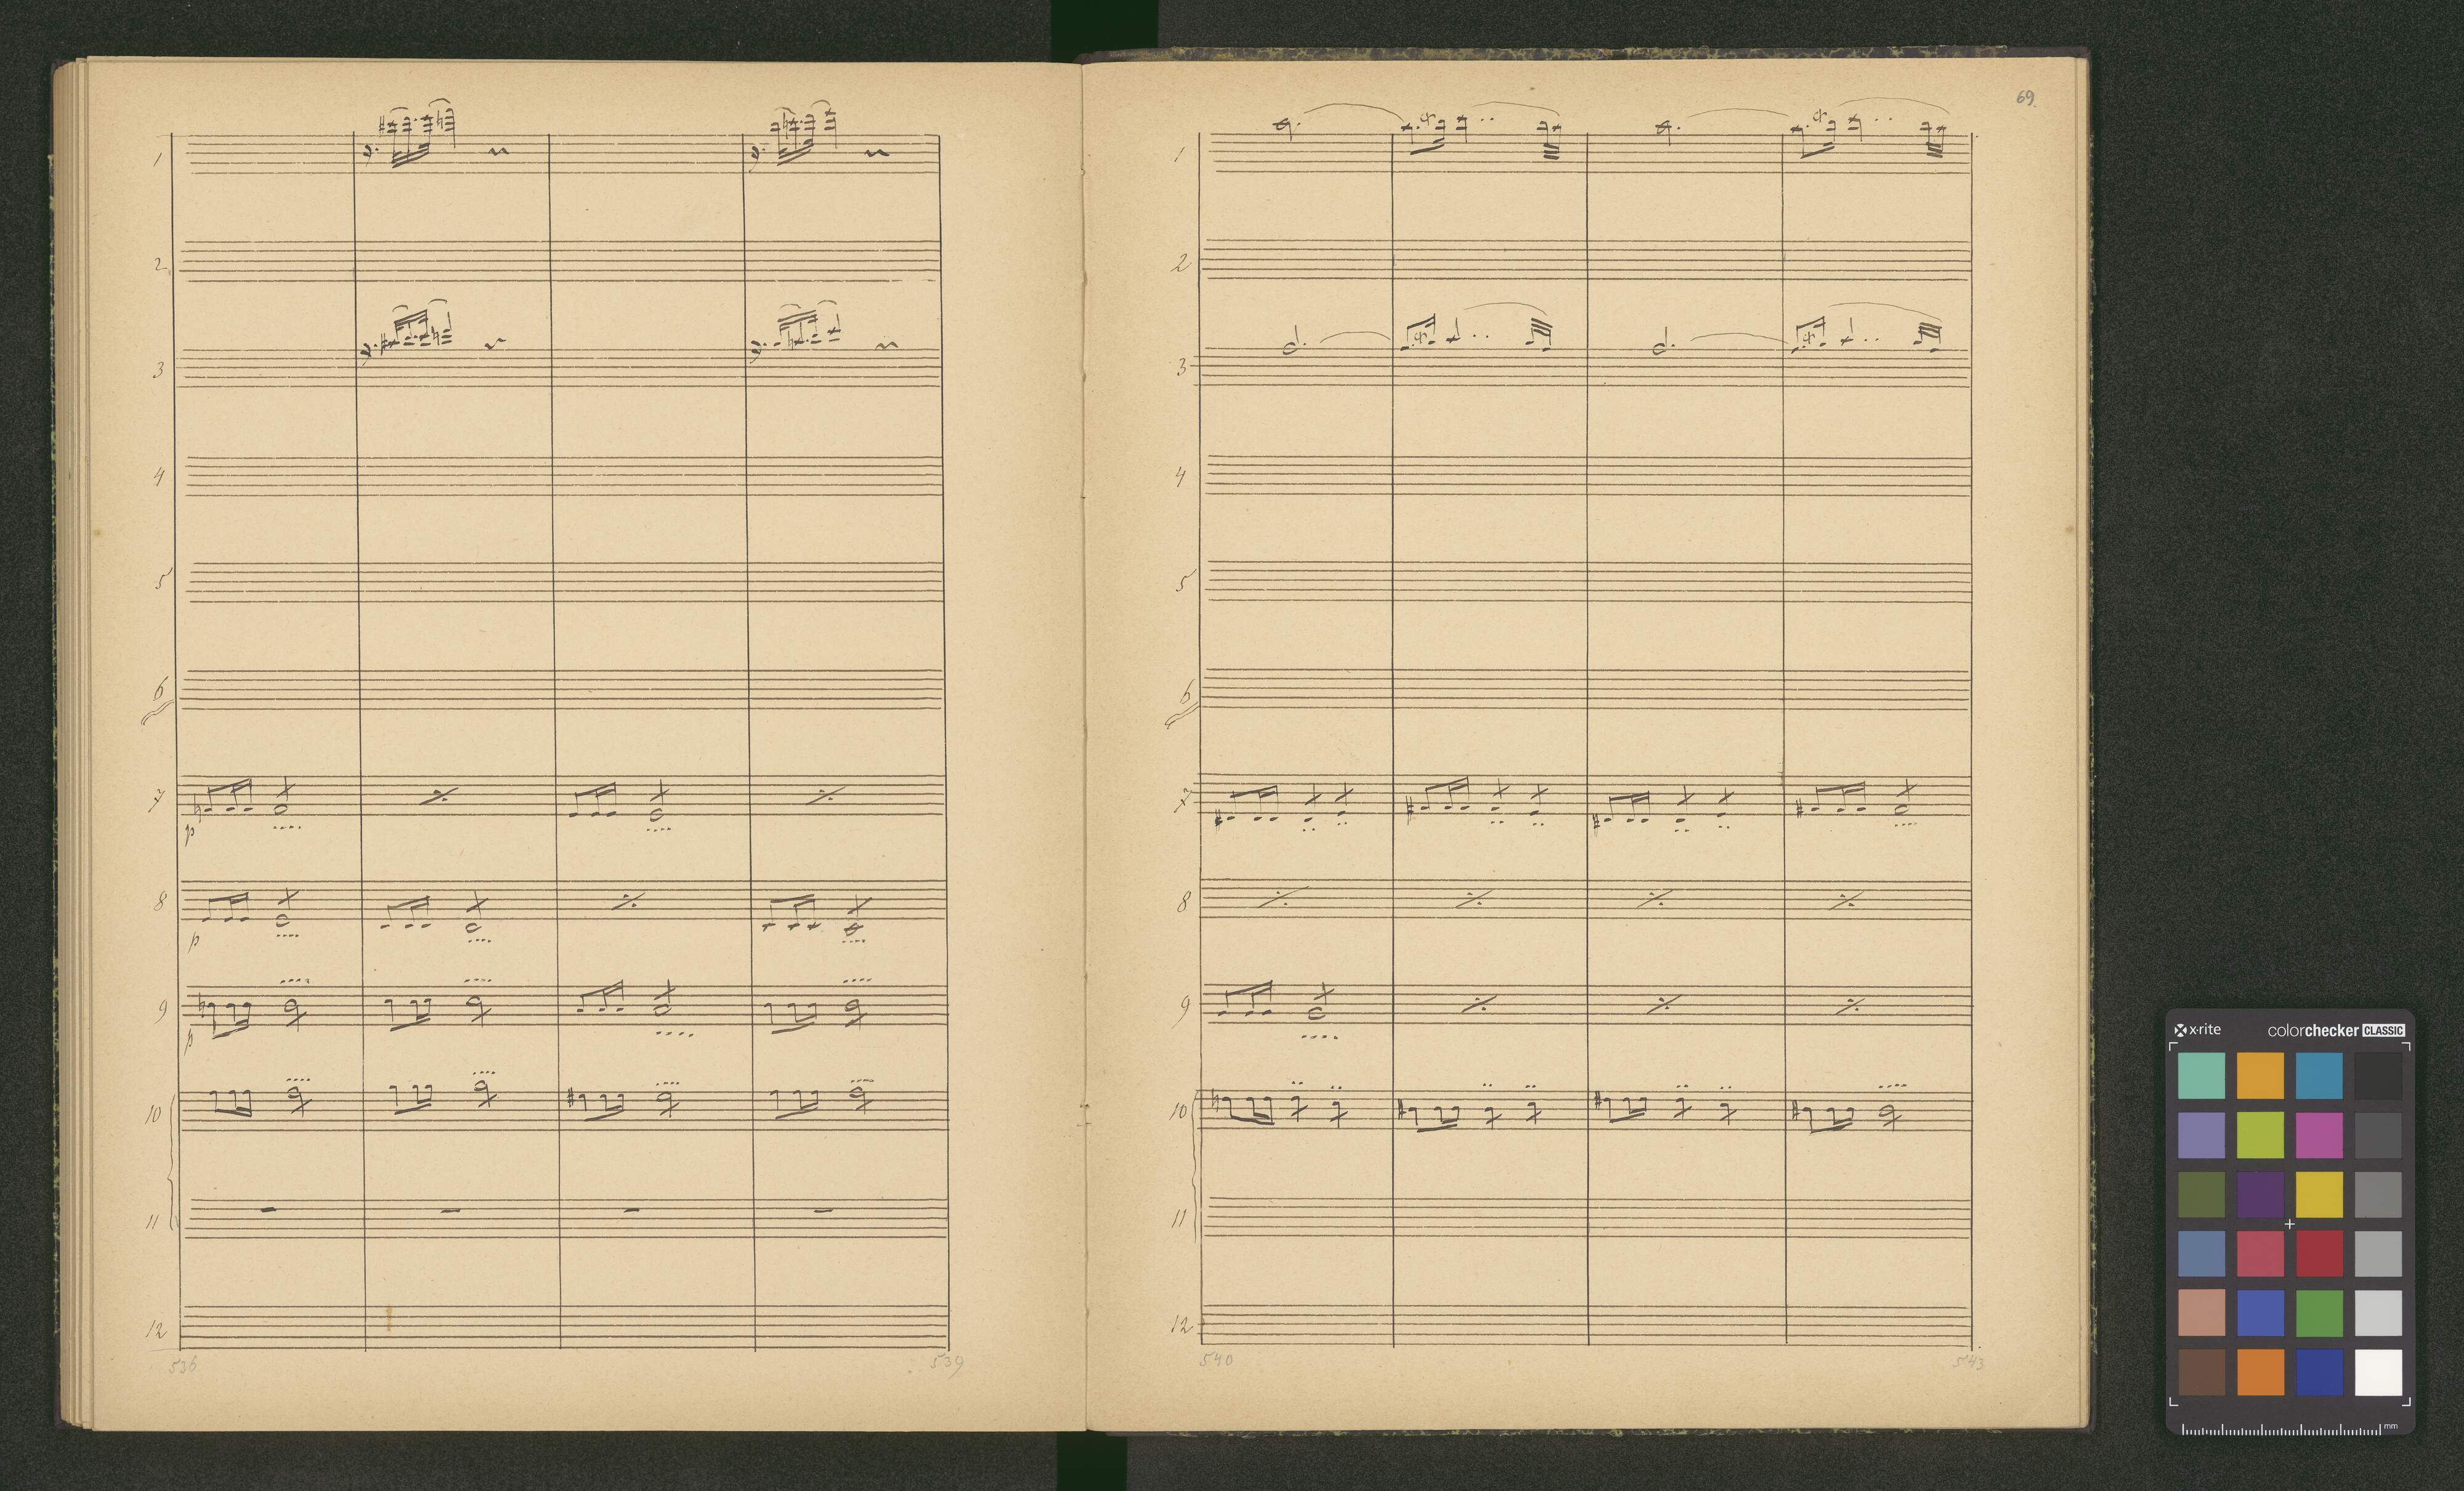 1
2
3
4
5
6
7
p
8
p
9
p
10
11
12
536
539
69.
1
2
3
4
5
6
7
8
9
10
11
12
540
543
x·rite
colorchecker CLASSIC
mm